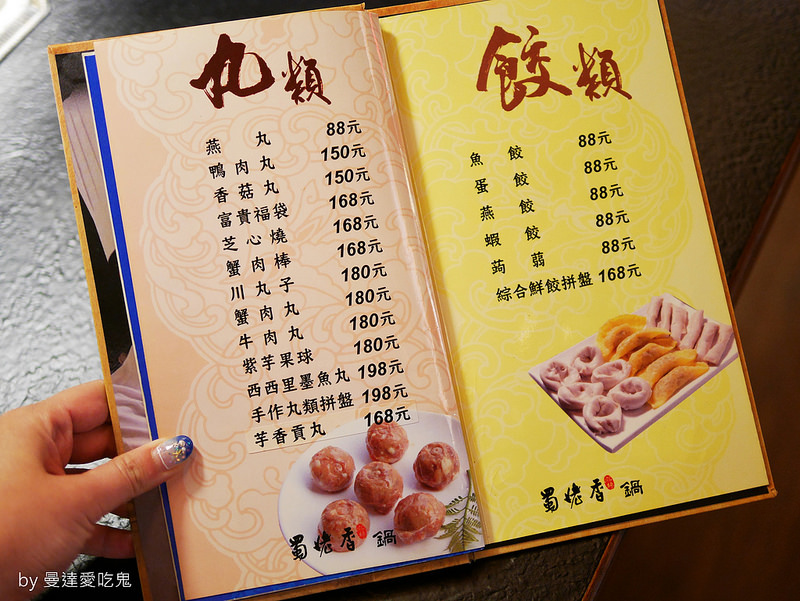 丸類
燕丸 88元
鴨肉丸 150元
香菇丸 150元
富貴福袋 168元
芝心燒 168元
蟹肉棒 168元
川丸子 180元
蟹肉丸 180元
牛肉丸 180元
紫芋果球 180元
西西里墨魚丸 198元
手作丸類拼盤 198元
芋香貢丸 168元
蜀姥香鍋
餃類
魚餃 88元
蛋餃 88元
燕餃 88元
蝦餃 88元
蒟蒻 88元
綜合鮮餃拼盤 168元
蜀姥香鍋
by 曼達愛吃鬼